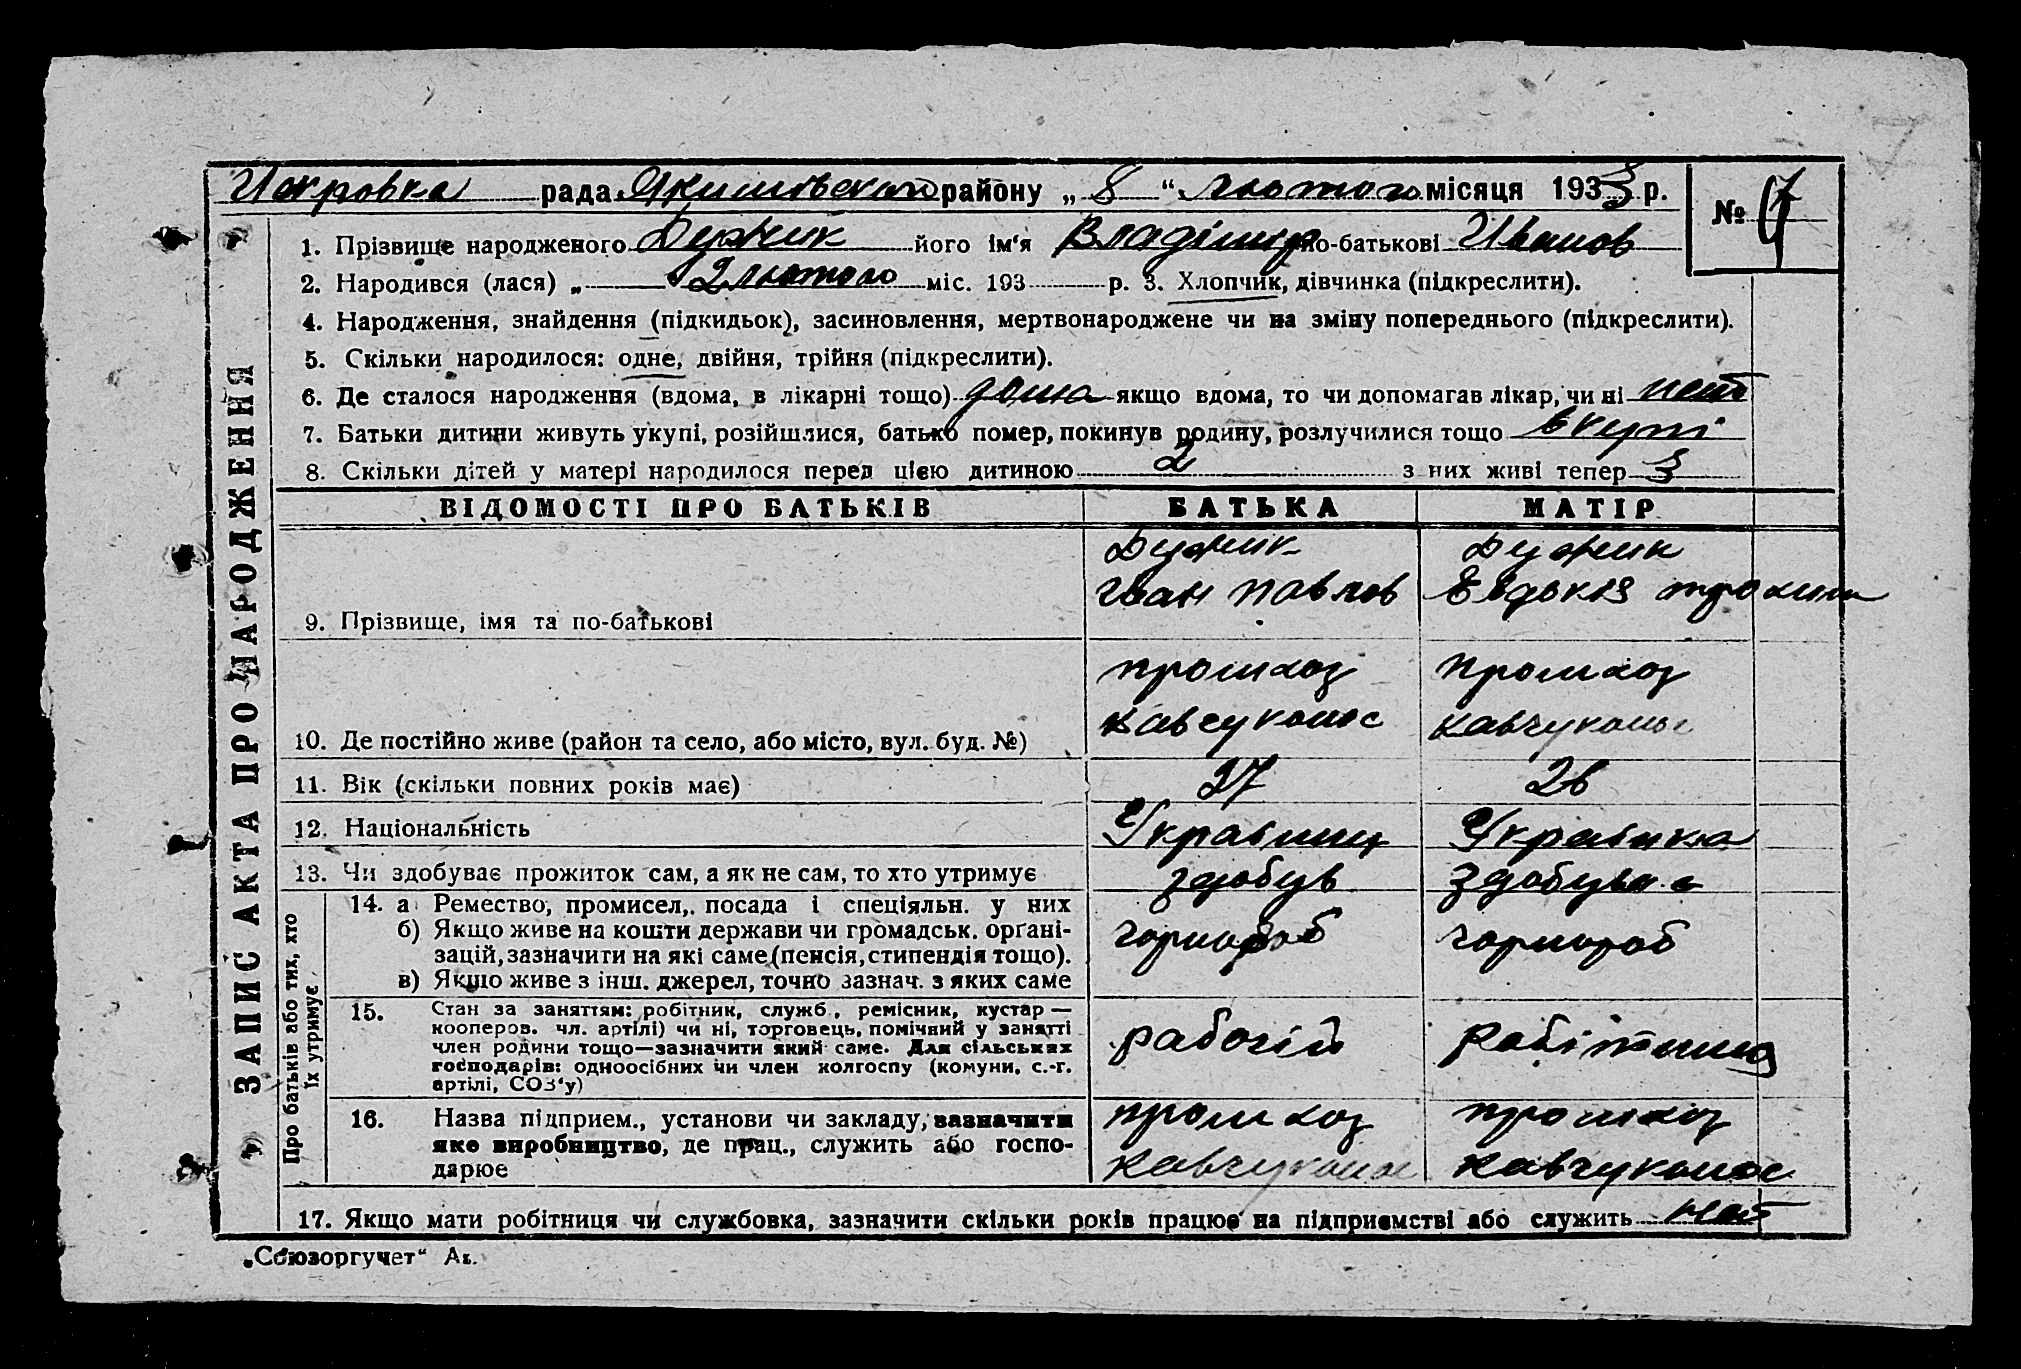 Искровка рада Якимовскои району „ 8 “ лютого місяця 1933 р. № 7
1. Прізвище народженого його ім'я Владімир по-батькові Иванов
2. Народився (лася) „ 2 лютого міс. 193 р. 3. Хлопчик, дівчинка (підкреслити).
4. Народження, знайдення (підкидьок), засиновлення, мертвонароджене чи на зміну попереднього (підкреслити).
5. Скільки народилося: одне, двійня, трійня (підкреслити).
6. Де сталося народження (вдома, в лікарні тощо) дома якщо вдома, то чи допомагав лікар, чи ні нет
7. Батьки дитини живуть укупі, розійшлися, батько помер, покинув родину, розлучилися тощо вкупі
8. Скільки дітей у матері народилося перед цією дитиною 2 з них живі тепер 3
ЗАПИС АКТА ПРО НАРОДЖЕННЯ
ВІДОМОСТІ ПРО БАТЬКІВ БАТЬКА МАТІР
Іван Павлов Евдокія
9. Прізвище, імя та по-батькові
промхоз промхоз
кавчуконос кавчуконос
10. Де постійно живе (район та село, або місто, вул. буд. №)
11. Вік (скільки повних років має) 27 26
12. Національність Українец Українка
13. Чи здобуває прожиток сам, а як не сам, то хто утримує здобув здобуває
Про батьків або тих, хто їх утримує
14. а Ремество, промисел, посада і спеціяльн. у них
б) Якщо живе на кошти держави чи громадськ. органі-
зацій, зазначити на які саме (пенсія, стипендія тощо).
в) Якщо живе з інш. джерел, точно зазнач. з яких саме
чорнороб чорнороб
15. Стан за заняттям: робітник, служб., ремісник, кустар—
кооперов. чл. артілі) чи ні, торговець, помічний у занятті
член родини тощо—зазначити який саме. Для сільських
господарів: одноосібних чи член колгоспу (комуни, с.-г.
артілі, СОЗ'у)
рабочій робітниця
16. Назва підприєм., установи чи закладу, зазначити
яке виробництво, де прац., служить або госпо-
дарює
промхоз промхоз
кавчуконос кавчуконос
17. Якщо мати робітниця чи службовка, зазначити скільки років працює на підприємстві або служить нет
„Союзоргучет“